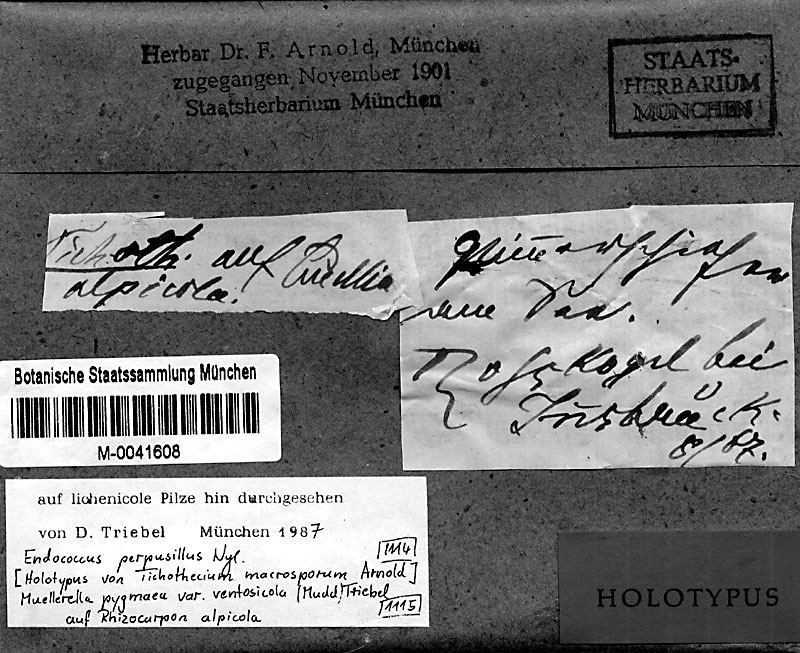 Herbar Dr. F. Arnold, München
zugegangen November 1901
Staatsherbarium München
STAATS-
HERBARIUM
MÜNCHEN
Tichoth. auf Buellia
alpicola.
Glimmerschiefer
am See.
Roßkogel bei
Innsbruck.
8/67.
Botanische Staatssammlung München
M-0041608
auf lichenicole Pilze hin durchgesehen
von D. Triebel München 1987
Endococcus perpusillus Nyl. 1114
[Holotypus von Tichothecium macrosporum Arnold]
Muellerella pygmaea var. ventosicola (Mudd) Triebel
1115
auf Rhizocarpon alpicola
HOLOTYPUS